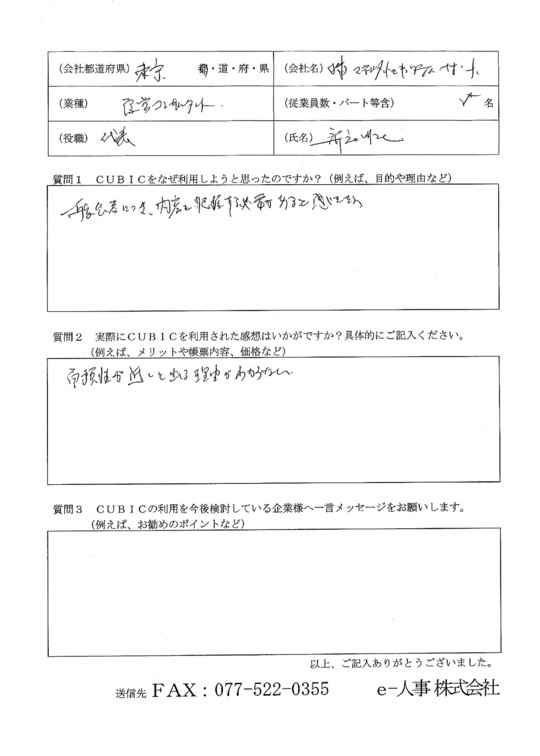 （会社都道府県）東京 都・道・府・県 （会社名）㈱
（業種）経営コンサルタント． （従業員数・パート等含） 名
（役職）代表 （氏名）
質問１ ＣＵＢＩＣをなぜ利用しようと思ったのですか？（例えば、目的や理由など）
につき、内容を把握する必要があると感じた
質問２ 実際にＣＵＢＩＣを利用された感想はいかがですか？具体的にご記入ください。
（例えば、メリットや帳票内容、価格など）
信頼性が低いと出る理由がわからない
質問３ ＣＵＢＩＣの利用を今後検討している企業様へ一言メッセージをお願いします。
（例えば、お勧めのポイントなど）
以上、ご記入ありがとうございました。
送信先 ＦＡＸ：077-522-0355 e-人事株式会社